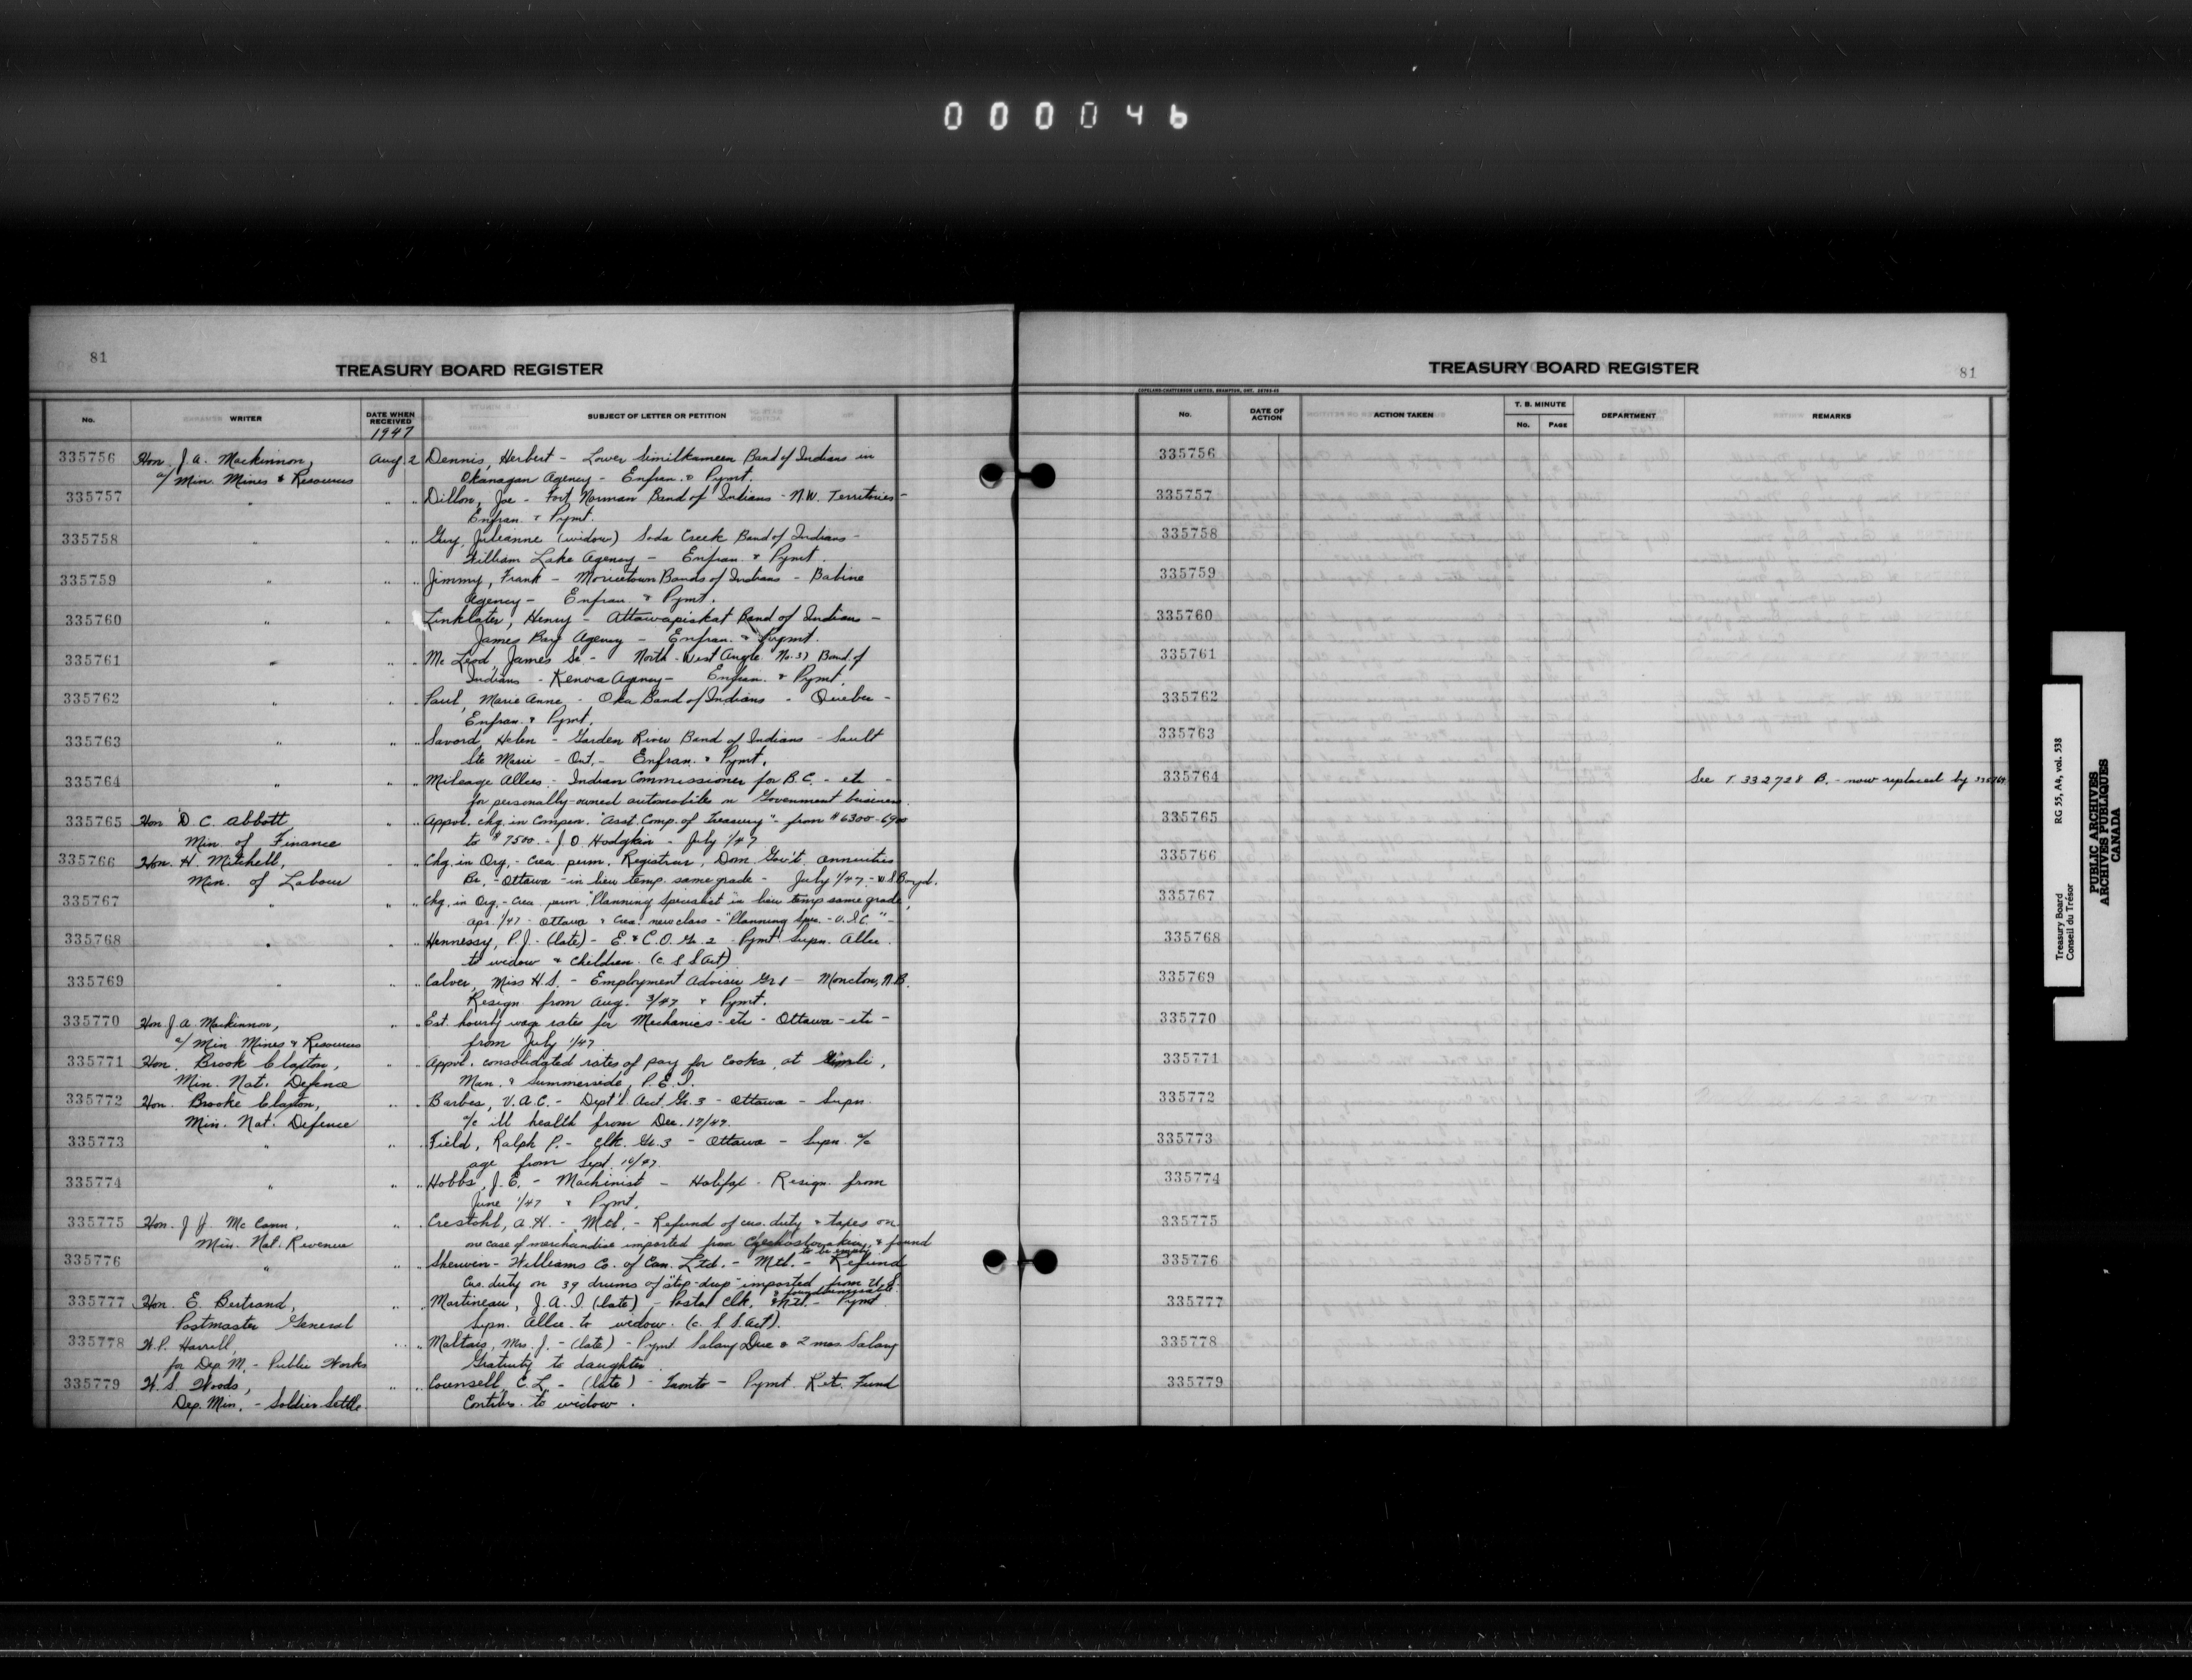 000046
81
TREASURY BOARD REGISTER
No. WRITER DATE WHEN RECEIVED SUBJECT OF LETTER OR PETITION
1947
335756 Hon. J. A. Mackinnon, Aug. 2 Dennis, Herbert - Lower Similkameen Band of Indians in
a/ Min. Mines & Resources Okanagan Agency - Enfran. & Pymt.
335757 " " " Dillon, Joe - Fort Norman Band of Indians - N.W. Territories -
Enfran. & Pymt.
335758 " " " Guy, Julianne (widow) Soda Creek Band of Indians -
William Lake Agency - Enfran. & Pymt
335759 " " " Jimmy, Frank - Moricetown Bands of Indians - Babine
Agency - Enfran. & Pymt.
335760 " " Linklater, Henry - Attawapiskat Band of Indians -
James Bay Agency - Enfran. & Pymt.
335761 " " " Mc Leod, James Sr. - North-West Angle No. 37 Band of
Indians - Kenora Agency - Enfran. & Pymt.
335762 " " " Paul, Marie Anne - Oka Band of Indians - Quebec -
Enfran. & Pymt.
335763 " " " Savord, Helen - Garden River Band of Indians - Sault
Ste Marie - Ont. - Enfran. & Pymt.
335764 " " " Mileage Allces - Indian Commissioner for B.C. - etc -
for personally-owned automobiles on Government business.
335765 Hon D. C. Abbott, " " Appvl. chg. in Compen. "Asst. Comp. of Treasury" - from $6300-6900
Min. of Finance to $7500. - J. O. Hodgkin - July 1/47
335766 Hon. H. Mitchell, " " Chg. in Org. - Crea. perm. Registrar, Dom. Gov't. Annuities
Min. of Labour Br. - Ottawa - in lieu temp. same grade - July 1/47 -
335767 " " " Chg. in Org. - Crea. perm. "Planning Specialist" in lieu temp same grade,
Apr. 1/47 - Ottawa & Crea. new class - "Planning Spec. - U.I.C." -
335768 " " " Hennessy, P. J. (late) - E. & C.O. Gr. 2 - Pymt Supn. Allce.
to widow & children. (C. S. S Act)
335769 " " " Calver, Miss H. S. - Employment Adviser Gr 1 - Moncton, N.B.
Resign. from Aug. 3/47 & Pymt.
335770 Hon J. A. Mackinnon, " " Est. hourly wage rates for Mechanics - etc - Ottawa - etc -
a/ Min. Mines & Resources from July 1/47
335771 Hon. Brook Claxton, " " Appvl. consolidated rates of pay for Cooks, at Gimli,
Min. Nat. Defence Man. & Summerside, P.E.I.
335772 Hon. Brooke Claxton, " " V. A. C. - Dept'l. Acct. Gr. 3 - Ottawa - Supn.
Min. Nat. Defence a/c ill health from Dec. 17/47.
335773 " " " Field, Ralph P. - Clk. Gr. 3 - Ottawa - Supn. a/c
age from Sept. 16/47.
335774 " " " Hobbs, J. E. - Machinist - Halifax - Resign. from
June 1/47 & Pymt.
335775 Hon. J. J. Mc Cann, " " Crestohl, A. H. - Mtl. - Refund of cus. duty & taxes on
Min. Nat. Revenue one case of merchandise imported from Czechoslovakia, & found
to be empty
335776 " " " Sherwin-Williams Co. of Can. Ltd. - Mtl. - Refund
Cus. duty on 39 drums of imported from U.S.
335777 Hon. E. Bertrand, " " Martineau, J. A. I. (late) - Postal Clk. Mtl. - Pymt.
Postmaster General Supn. Allce. to widow. (C. S. S. Act).
335778 W. P. Harrell, " " Maltais, Mrs. J. - (late) - Pymt Salary Due & 2 mos. Salary
for Dep. M. - Public Works Gratuity to daughter.
335779 W. S. Woods, " " Counsell, C. L. - (late) - Toronto - Pymt. Ret. Fund
Dep. Min. - Soldier Settle. Contibs. to widow.
TREASURY BOARD REGISTER
81
COPELAND-CHATTERSON LIMITED, BRAMPTON, ONT.
No. DATE OF ACTION ACTION TAKEN T. B. MINUTE No. PAGE DEPARTMENT REMARKS
335756
335757
335758
335759
335760
335761
335762
335763
335764 See T. 332728 B. - now replaced by
335765
335766
335767
335768
335769
335770
335771
335772
335773
335774
335775
335776
335777
335778
335779
Treasury Board RG 55, A4, vol. 538
Conseil du Trésor
PUBLIC ARCHIVES
ARCHIVES PUBLIQUES
CANADA